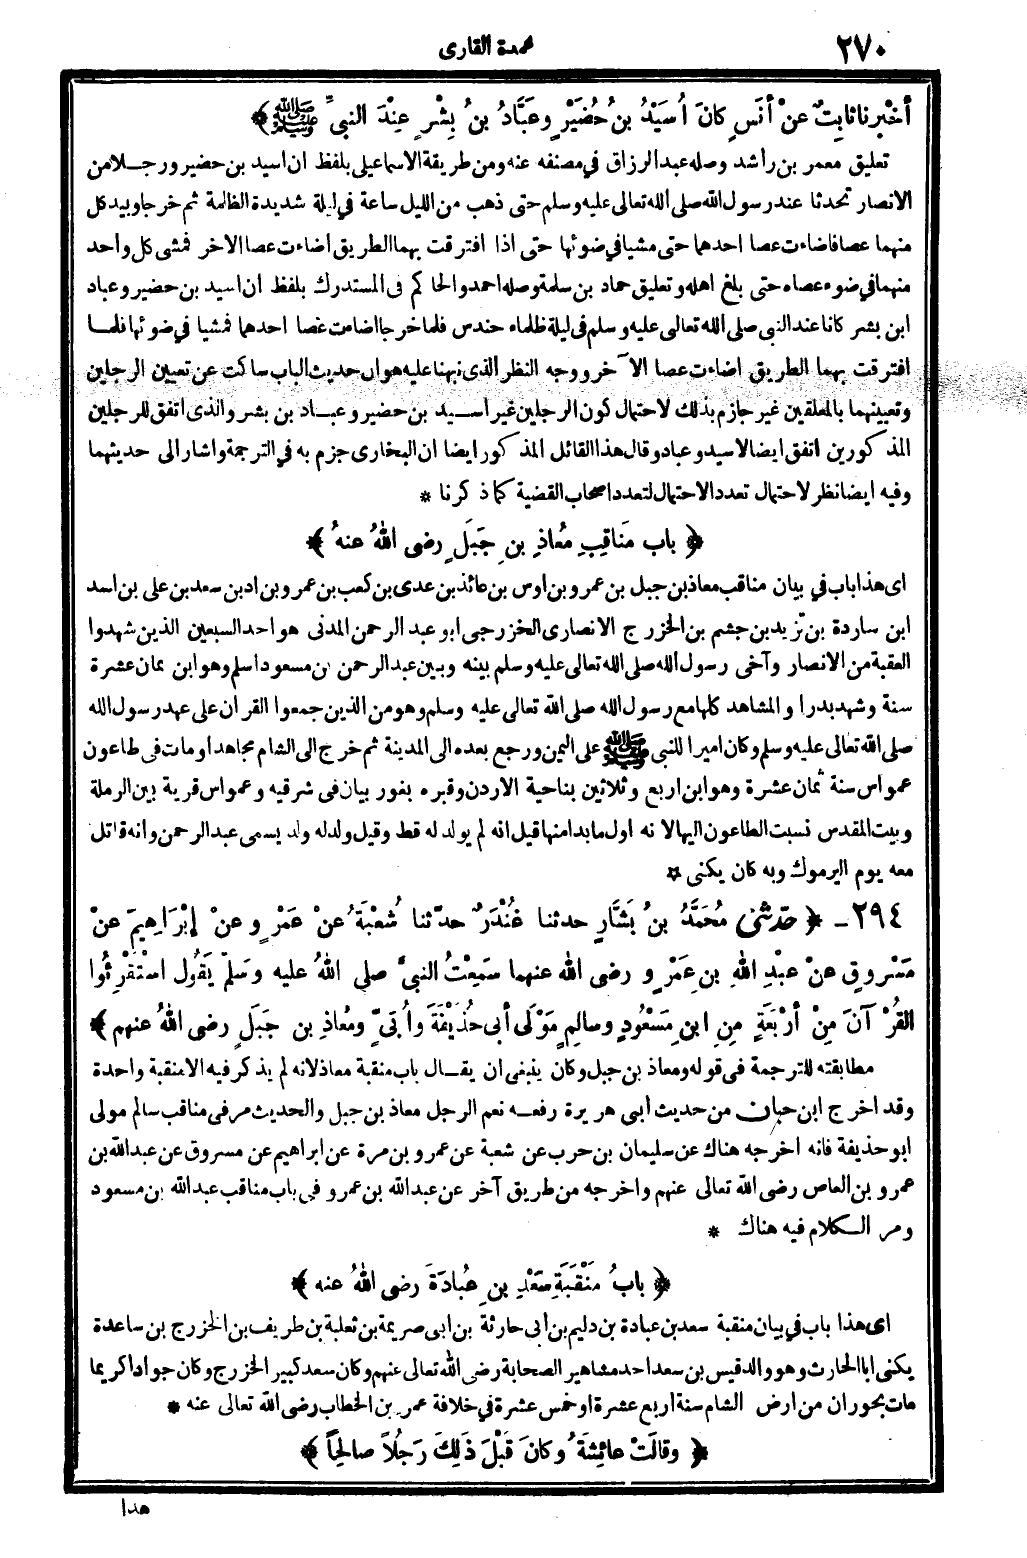 ٢٧٠
عمدة القارى
أخْبرنا ثابِتٌ عنْ أنَسٍ كانَ أُسَيْدُ بنُ حُضَيْرٍ وعَبَّادُ بنُ بِشْرٍ عِنْدَ النبيِّ ﷺ ﴾
تعليق معمر بن راشد وصله عبد الرزاق في مصنفه عنه ومن طريقة الاسماعيلى بلفظ ان اسيد بن حضير ورجلا من
الانصار تحدثا عند رسول الله صلى الله تعالى عليه وسلم حتى ذهب من الليل ساعة في ليلة شديدة الظلمة ثم خرجا وبيد كل
منهما عصا فاضاءت عصا احدهما حتى مشيا في ضوئها حتى اذا افترقت بهما الطريق اضاءت عصا الاخر فمشى كل واحد
منهما في ضوء عصاه حتى بلغ اهله وتعليق حماد بن سلمة وصله احمد والحاكم فى المستدرك بلفظ ان اسيد بن حضير وعباد
ابن بشر كانا عند النبي صلى الله تعالى عليه وسلم فى ليلة ظلماء حندس فلما خرجا اضاءت عصا احدهما فمشيا في ضوئها فلما
افترقت بهما الطريق اضاءت عصا الآخر ووجه النظر الذى نبهنا عليه هو ان حديث الباب ساكت عن تعيين الرجلين
وتعيينهما بالمعلقين غير جازم بذلك لاحتمال كون الرجلين غير اسيد بن حضير وعباد بن بشر والذى اتفق للرجلين
المذكورين اتفق ايضا لاسيد وعباد وقال هذا القائل المذكور ايضا ان البخارى جزم به في الترجمة واشار الى حديثهما
وفيه ايضا نظر لاحتمال تعدد الاحتمال لتعدد اصحاب القضية كما ذكرنا *
﴿ باب مَناقِبِ مُعاذِ بنِ جَبَلٍ رضى اللهُ عنهُ ﴾
اى هذا باب في بيان مناقب معاذ بن جبل بن عمرو بن اوس بن عائذ بن عدى بن كعب بن عمرو بن اد بن سعد بن على بن اسد
ابن ساردة بن تزيد بن جشم بن الخزرج الانصارى الخزرجى ابو عبد الرحمن المدنى هو احد السبعين الذين شهدوا
العقبة من الانصار وآخى رسول الله صلى الله تعالى عليه وسلم بينه وبين عبد الرحمن بن مسعود اسلم وهو ابن ثمان عشرة
سنة وشهد بدرا والمشاهد كلها مع رسول الله صلى الله تعالى عليه وسلم وهو من الذين جمعوا القرآن على عهد رسول الله
صلى الله تعالى عليه وسلم وكان اميرا للنبي ﷺ على اليمن ورجع بعده الى المدينة ثم خرج الى الشام مجاهدا ومات فى طاعون
عمواس سنة ثمان عشرة وهو ابن اربع وثلاثين بناحية الاردن وقبره بغور بيان فى شرقيه وعمواس قرية بين الرملة
وبيت المقدس نسبت الطاعون اليها لانه اول ما بدا منها قيل انه لم يولد له قط وقيل ولد له ولد يسمى عبد الرحمن وانه قاتل
معه يوم اليرموك وبه كان يكنى *
٢٩٤ - ﴿ حدّثنى مُحَمَّدُ بنُ بَشَّارٍ حدثنا غُنْدَرٌ حدّثنا شُعْبَةُ عنْ عَمْرٍو عنْ إبْرَاهِيمَ عنْ
مَسْروقٍ عنْ عبْدِ اللهِ بنِ عَمْرٍو رضى الله عنهما سَمِعْتُ النبيَّ صلى اللهُ عليه وسَلّم يَقُول اسْتَقْرِئُوا
القُرْآنَ مِنْ أرْبَعَةٍ مِنِ ابنِ مَسْعُودٍ وسالِمٍ مَوْلَى أبي حُذَيْفَةَ وأُبَيٍّ ومُعاذِ بنِ جَبَلٍ رضى اللهُ عنهم ﴾
مطابقته للترجمة فى قوله ومعاذ بن جبل وكان ينبغى ان يقال باب منقبة معاذ لانه لم يذكر فيه الا منقبة واحدة
وقد اخرج ابن حبان من حديث أبى هريرة رفعه نعم الرجل معاذ بن جبل والحديث مر فى مناقب سالم مولى
ابو حذيفة فانه اخرجه هناك عن سليمان بن حرب عن شعبة عن عمرو بن مرة عن ابراهيم عن مسروق عن عبد الله بن
عمرو بن العاص رضى الله تعالى عنهم واخرجه من طريق آخر عن عبد الله بن عمرو فى باب مناقب عبد الله بن مسعود
ومر الكلام فيه هناك *
﴿ بابُ مَنْقَبَةِ سَعْدِ بنِ عُبادَةَ رضى اللهُ عنه ﴾
اى هذا باب في بيان منقبة سعد بن عبادة بن دليم بن أبى حارثة بن ابى صريمة بن ثعلبة بن طريف بن الخزرج بن ساعدة
يكنى ابا الحارث وهو والد قيس بن سعد احد مشاهير الصحابة رضى الله تعالى عنهم وكان سعد كبير الخزرج وكان جوادا كريما
مات بحوران من ارض الشام سنة اربع عشرة او خمس عشرة في خلافة عمر بن الخطاب رضى الله تعالى عنه *
﴿ وقالَتْ عائِشَةُ وكانَ قَبْلَ ذَلِكَ رَجُلاً صالِحاً ﴾
هذا